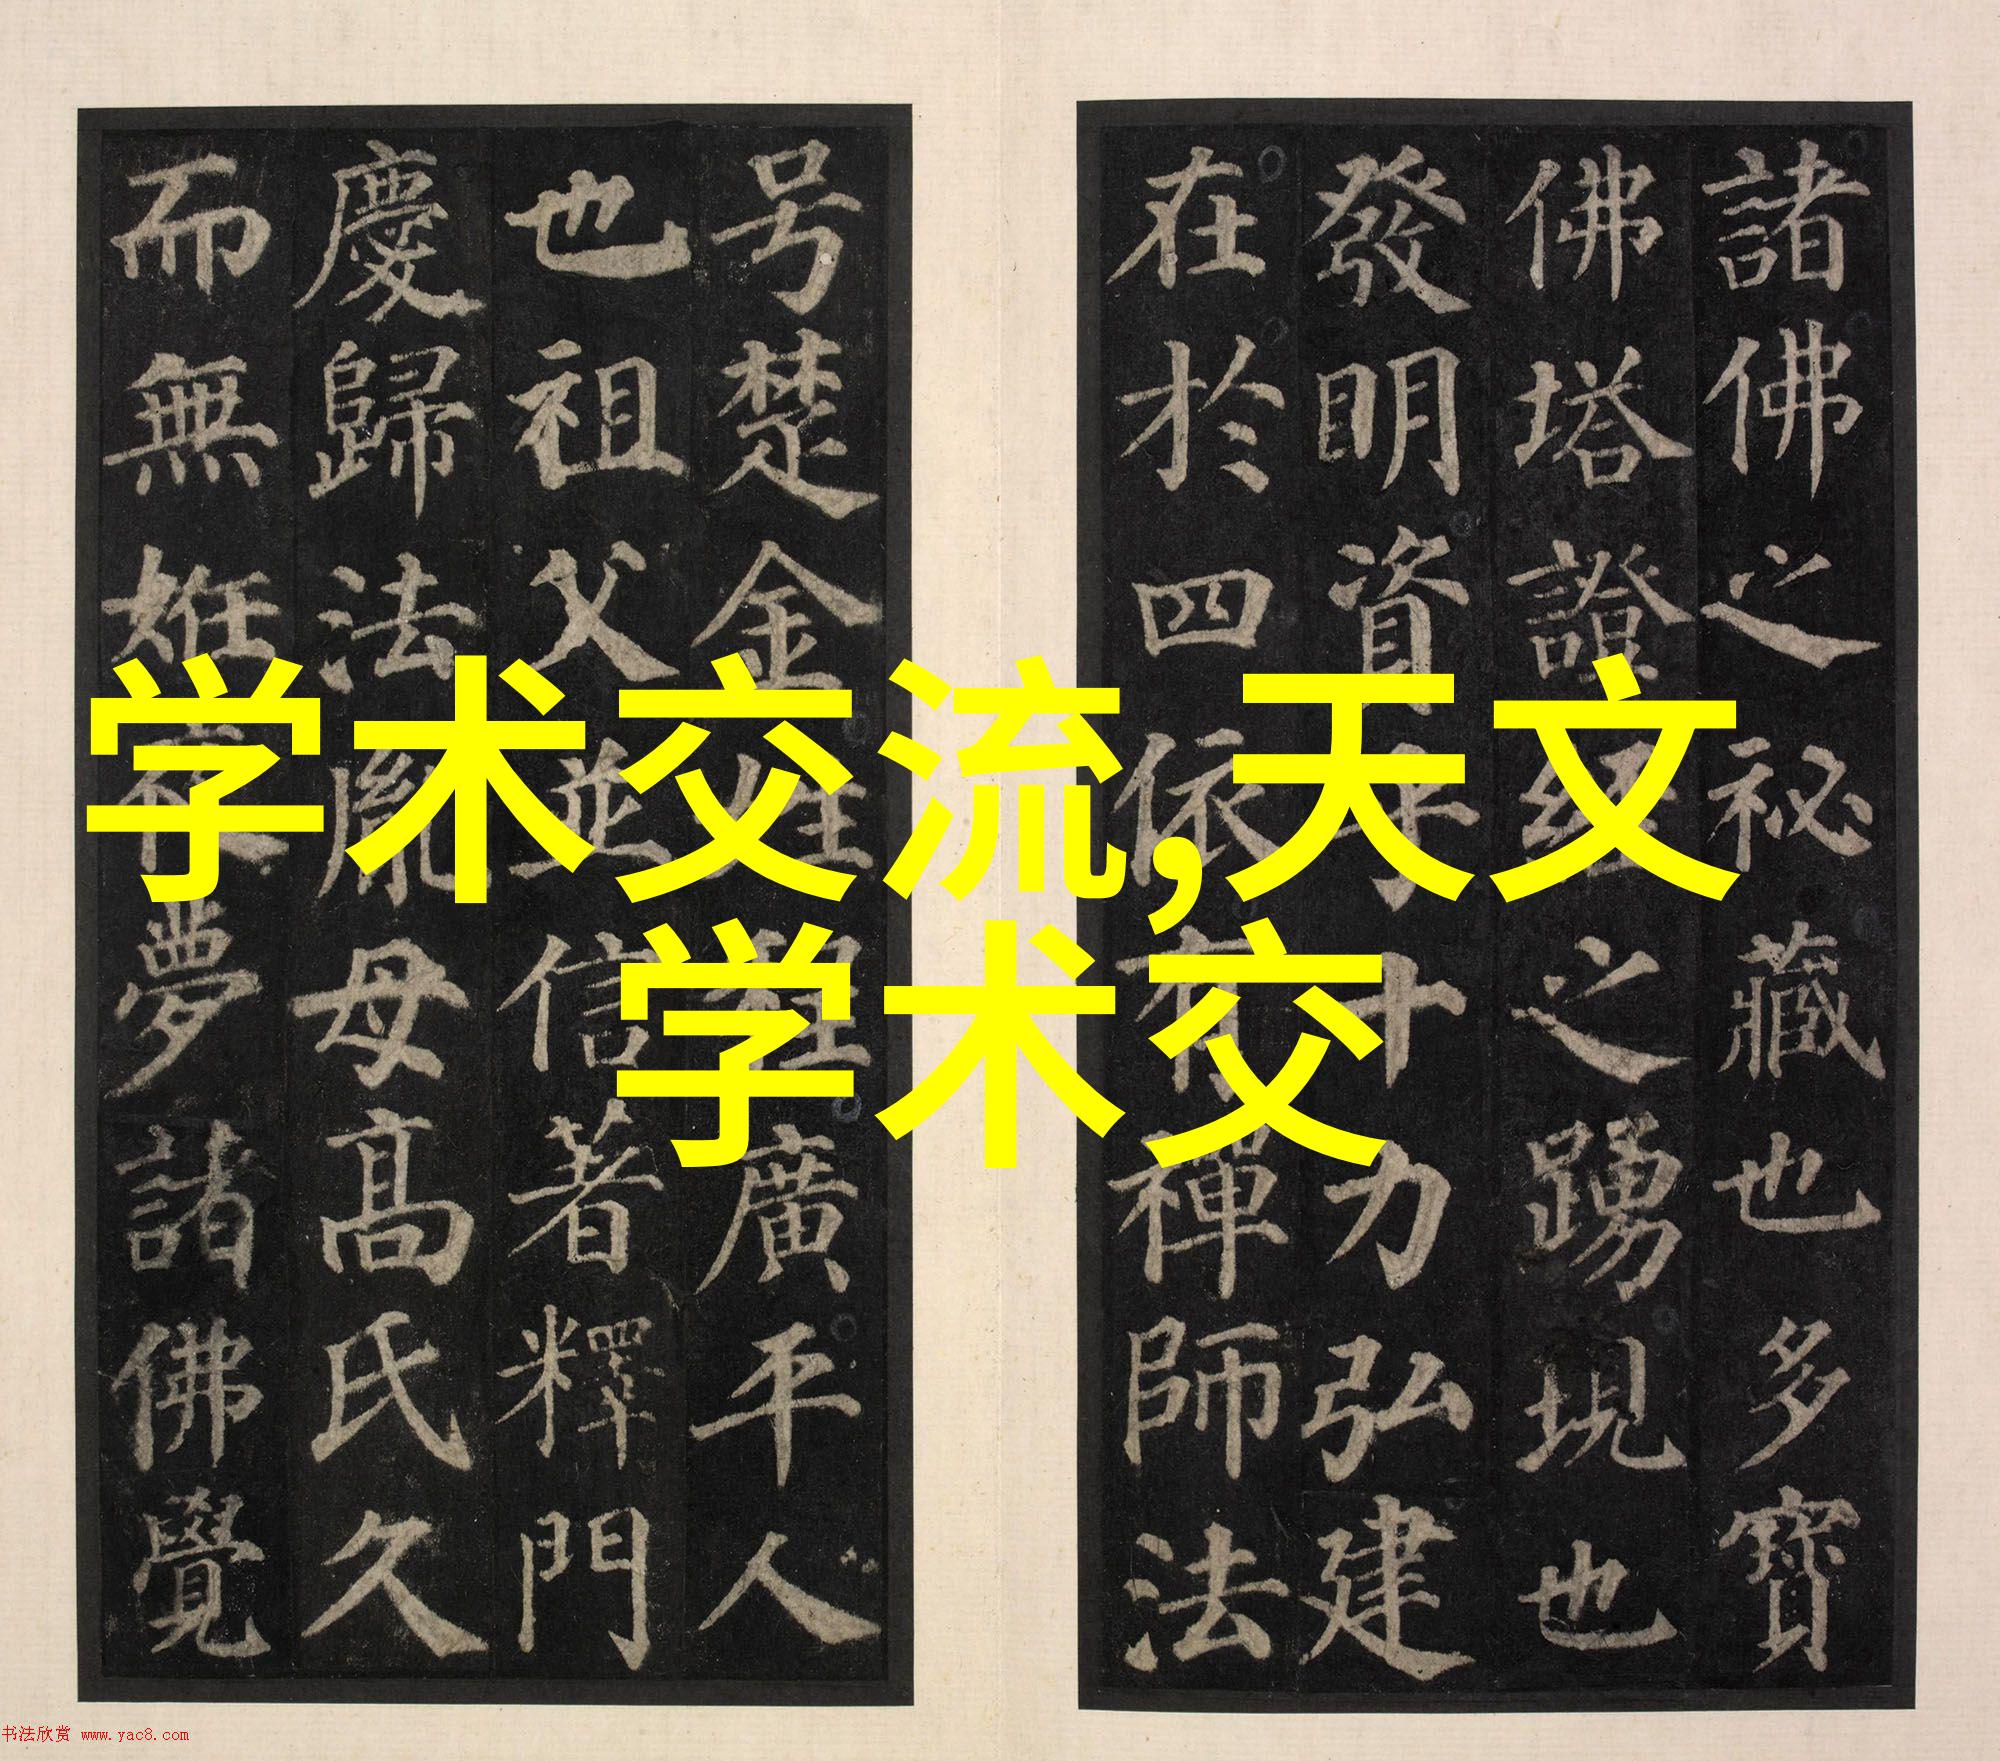 諸佛之祕藏也多寶
佛塔證經之踴現也
發明資乎十力弘建
在於四依有禪師法
号楚金姓程廣平人
也祖父並信著釋門
慶歸法胤母髙氏久
而無姙夜夢諸佛覺
学术交流,天文
学术交
书法欣赏 www.yac8.com